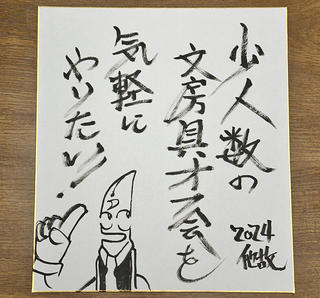 少人数の
文房具オフ会も
気軽に
やりたい!
2024
他故